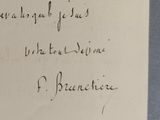 que je suis
votre tout dévoué
F. Brunetière